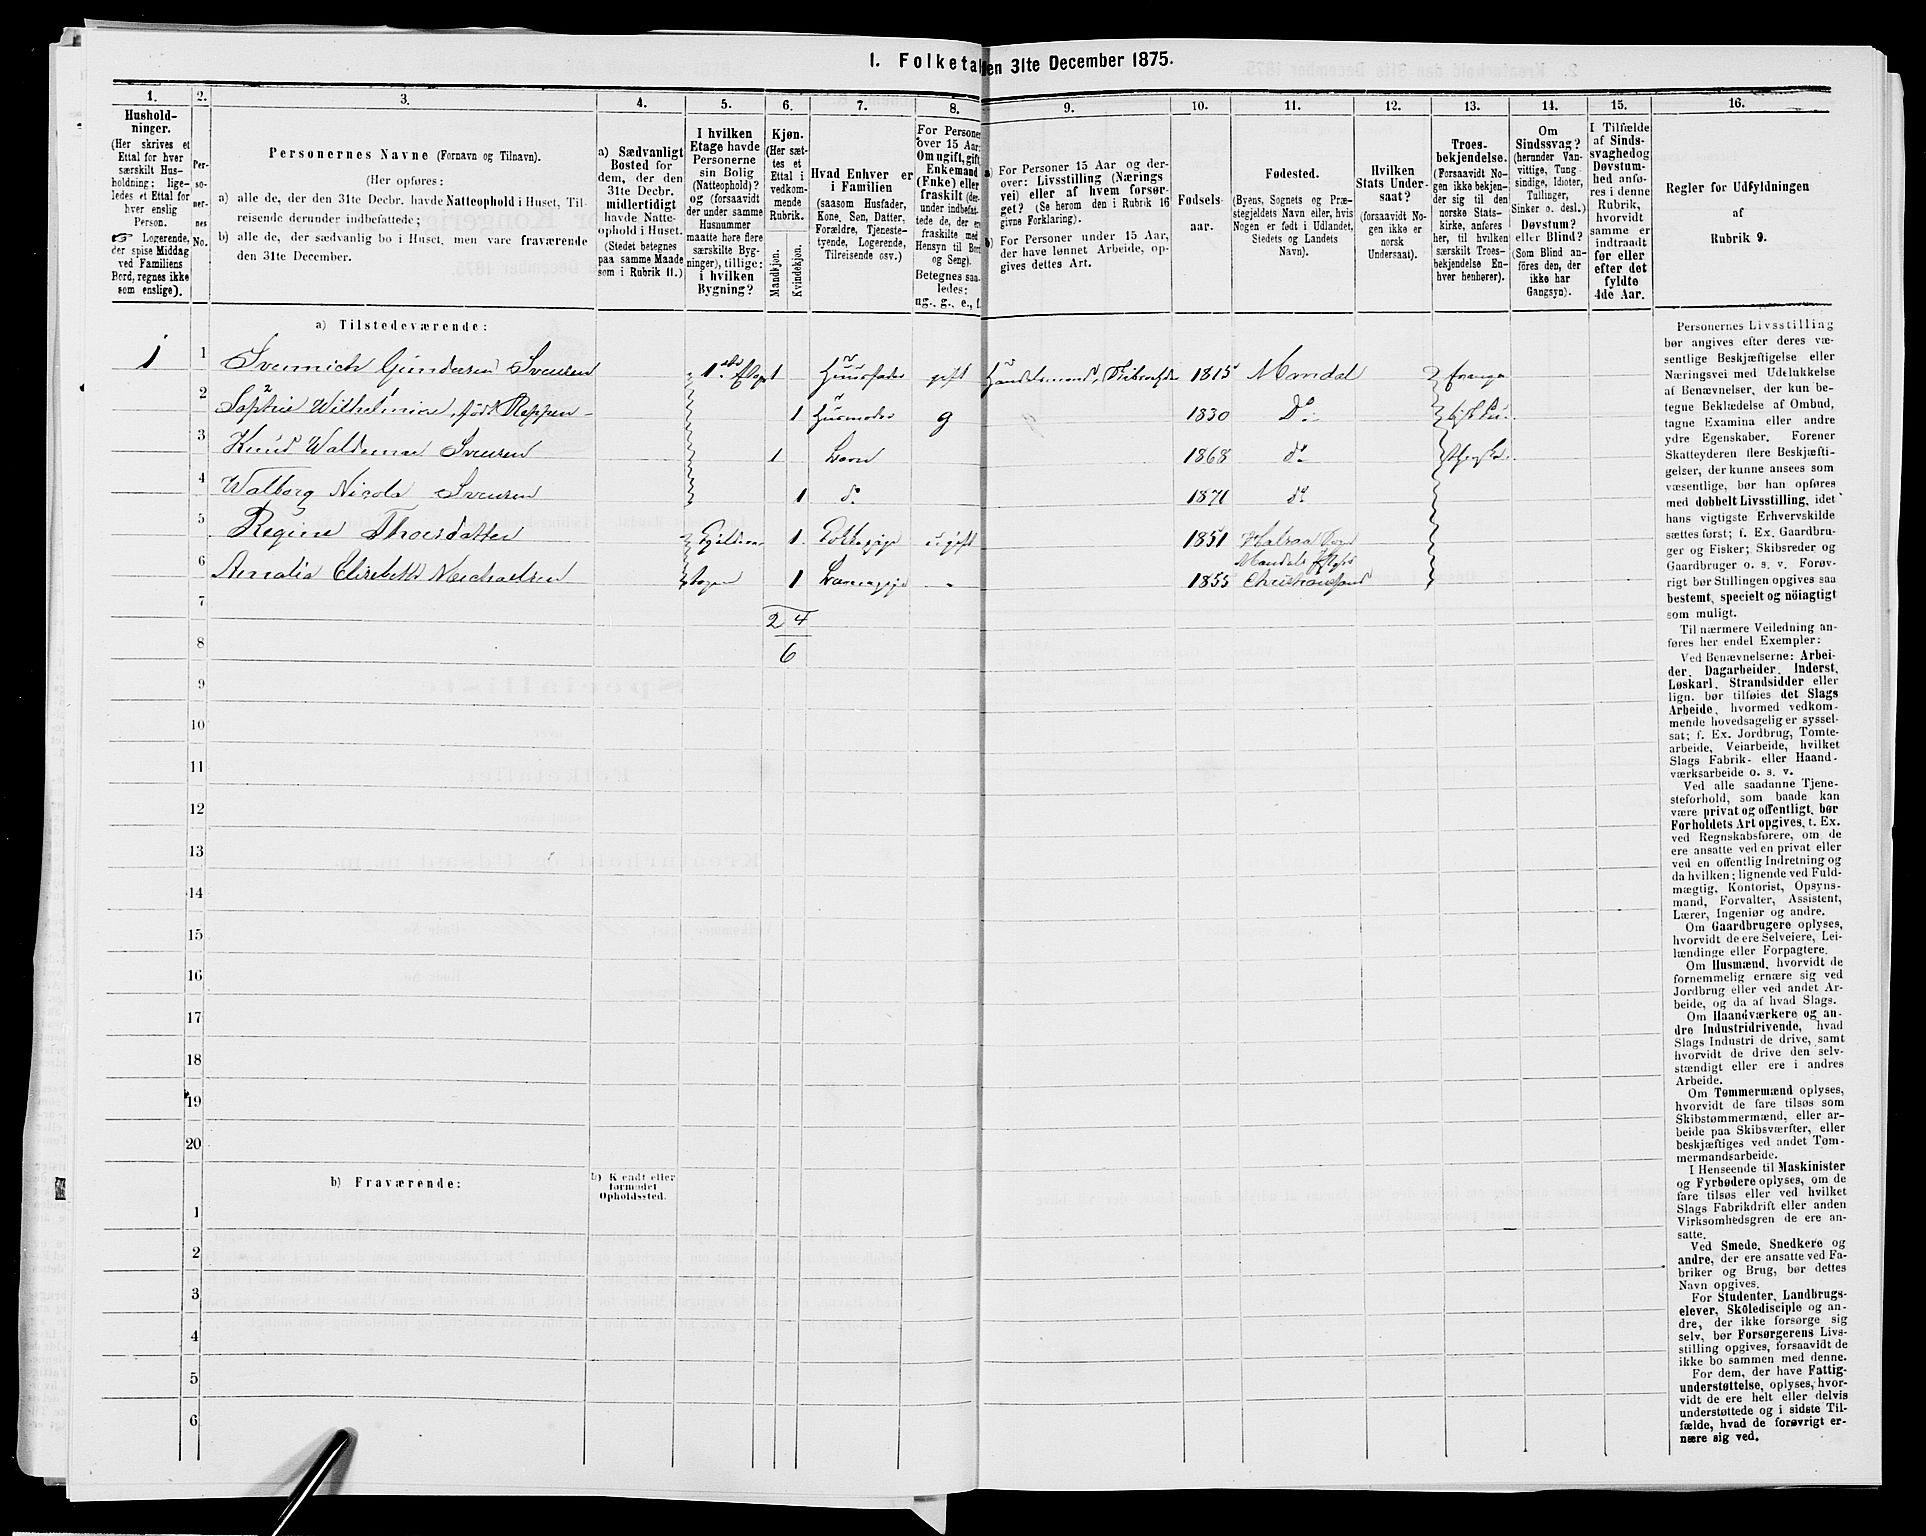 1. Folketal den 31te December 1875.
1. 2. 3. 4. 5. 6. 7. 8. 9. 10. 11. 12. 13. 14. 15. 16.
Hushold-
ninger.
(Her skrives et
Ettal for hver
særskilt Hus-
holdning; lige-
ledes et Ettal for
hver enslig
Person.
☞ Logerende,
der spise Middag
ved Familiens
Bord, regnes ikke
som enslige).
Per-
so-
ner-
nes
No.
Personernes Navne (Fornavn og Tilnavn).
(Her opføres:
a) alle de, der den 31te Decbr. havde Natteophold i Huset, Til-
reisende derunder indbefattede;
b) alle de, der sædvanlig bo i Huset, men vare fraværende
den 31te December.
a) Sædvanligt
Bosted for
dem, der den
31te Decbr.
midlertidigt
havde Natte-
ophold i Huset.
(Stedet betegnes
paa samme Maade
som i Rubrik 11.)
I hvilken
Etage havde
Personerne
sin Bolig
(Natteophold)?
og (forsaavidt
der under samme
Husnummer
maatte høre flere
særskilte Byg-
ninger), tillige:
i hvilken
Bygning?
Kjøn.
(Her sæt-
tes et
Ettal i
vedkom-
mende
Rubrik.
Mandkjøn.
Kvindekjøn.
Hvad Enhver er
i Familien
(saasom Husfader,
Kone, Søn, Datter,
Forældre, Tjeneste-
tyende, Logerende,
Tilreisende osv.)
For Personer
over 15 Aar:
Om ugift, gift,
Enkemand
(Enke) eller
fraskilt (der-
under indbefat-
tede de, der ere
fraskilte med
Hensyn til Bord
og Seng).
Betegnes saa-
ledes:
ug., g., e., f.
a) For Personer 15 Aar og der-
over: Livsstilling (Nærings
vei) eller af hvem forsør-
get? (Se herom den i Rubrik 16
givne Forklaring).
b) For Personer under 15 Aar,
der have lønnet Arbeide, op-
gives dettes Art.
Fødsels-
aar.
Fødested.
(Byens, Sognets og Præ-
stegjeldets Navn eller, hvis
Nogen er født i Udlandet,
Stedets og Landets
Navn).
Hvilken
Stats Under-
saat?
(forsaavidt No-
gen ikke er
norsk
Undersaat).
Troes-
bekjendelse.
(Forsaavidt No-
gen ikke bekjen-
der sig til den
norske Stats-
kirke, anføres
her, til hvilken
særskilt Troes-
bekjendelse En-
hver henhører).
Om
Sindssvag?
(herunder Van-
vittige, Tung
sindige, Idioter,
Tullinger,
Sinker o. desl.)
Døvstum?
eller Blind?
(Som Blind an-
føres den, der
ikke har
Gangsyn).
I Tilfælde
af Sinds-
svaghed og
Døvstum-
hed anfø-
res i denne
Rubrik,
hvorvidt
samme er
indtraadt
før eller
efter det
fyldte
4de Aar.
Regler for Udfyldningen
af
Rubrik 9.
a) Tilstedeværende:
1 1 Svennich Gundersen Svensen 1ste Etage 1 Huusfader gift Handelsmand, 1815 Mandal
2 Sophie Wilhelmine, født Reppen 1 Husmoder g 1830 Do
3 Knud Waldemar Svensen 1 Søn 1868 do
4 Walborg Nicola Svensen 1 do 1871 do
5 Regine Thorsdatter 1 Kokkepige ugift 1851 Halsaa Sogn
Mandals
6 Amalia Elisabeth Michaelsen 1 Barnepige 1855 Christiansand
7
2 4
8
6
9
10
11
12
13
14
15
16
17
18
19
20
b) Fraværende:
b) Kjendt eller
formodet
Opholdssted.
1
2
3
4
5
6
Personernes Livsstilling
bør angives efter deres væ-
sentlige Beskjæftigelse eller
Næringsvei med Udelukkelse
af Benævnelser, der kun be-
tegne Beklædelse af Ombud,
tagne Examina eller andre
ydre Egenskaber. Forener
Skatteyderen flere Beskjæfti-
gelser, der kunne ansees som
væsentlige, bør han opføres
med dobbelt Livsstilling, idet
hans vigtigste Erhvervskilde
sættes først; f. Ex. Gaardbru-
ger og Fisker; Skibsreder og
Gaardbruger o. s. v. Forøv-
rigt bør Stillingen opgives saa
bestemt, specielt og nöiagtigt
som muligt.
Til nærmere Veiledning an-
føres her endel Exempler:
Ved Benævnelserne: Arbei-
der, Dagarbeider, Inderst,
Løskarl, Strandsidder eller
lign. bør tilføies det Slags
Arbeide, hvormed vedkom-
mende hovedsagelig er syssel-
sat; f. Ex. Jordbrug, Tomte-
arbeide, Veiarbeide, hvilket
Slags Fabrik- eller Haand-
værksarbeide o. s. v.
Ved alle saadanne Tjene-
steforhold, som baade kan
være privat og offentligt, bør
Forholdets Art opgives, t. Ex.
ved Regnskabsførere, om de
ere ansatte ved en privat eller
ved en offentlig Indretning og
da hvilken; lignende ved Fuld-
mægtig, Kontorist, Opsyns-
mand, Forvalter, Assistent,
Lærer, Ingeniør og andre.
Om Gaardbrugere oplyses,
hvorvidt de ere Selveiere, Lei-
lændinge eller Forpagtere.
Om Husmænd, hvorvidt de
fornemmelig ernære sig ved
Jordbrug eller ved andet Ar-
beide, og da af hvad Slags.
Om Haandværkere og an-
dre Industridrivende, hvad
Slags Industri de drive, samt
hvorvidt de drive den selv-
stændigt eller ere i andres
Arbeide.
Om Tømmermænd oplyses,
hvorvidt de fare tilsøs som
Skibstømmermænd, eller ar-
beide paa Skibsværfter, eller
beskjæftiges ved andet Tøm-
mermandsarbeide.
I Henseende til Maskinister
og Fyrbødere oplyses, om de
fare tilsøs eller ved hvilket
Slags Fabrikdrift eller anden
Virksomhedsgren de ere an-
satte.
Ved Smede, Snedkere og
andre, der ere ansatte ved Fa-
briker og Brug, bør dettes
Navn opgives.
For Studenter, Landbrugs-
elever, Skoledisciple og an-
dre, der ikke forsørge sig
selv, bør Forsørgerens Livs-
stilling opgives, forsaavidt de
ikke bo sammen med denne.
For dem, der have Fattig-
understøttelse, oplyses, hvor-
vidt de ere helt eller delvis
understøttede og i sidste Til-
fælde, hvad de forøvrigt er-
nære sig ved.